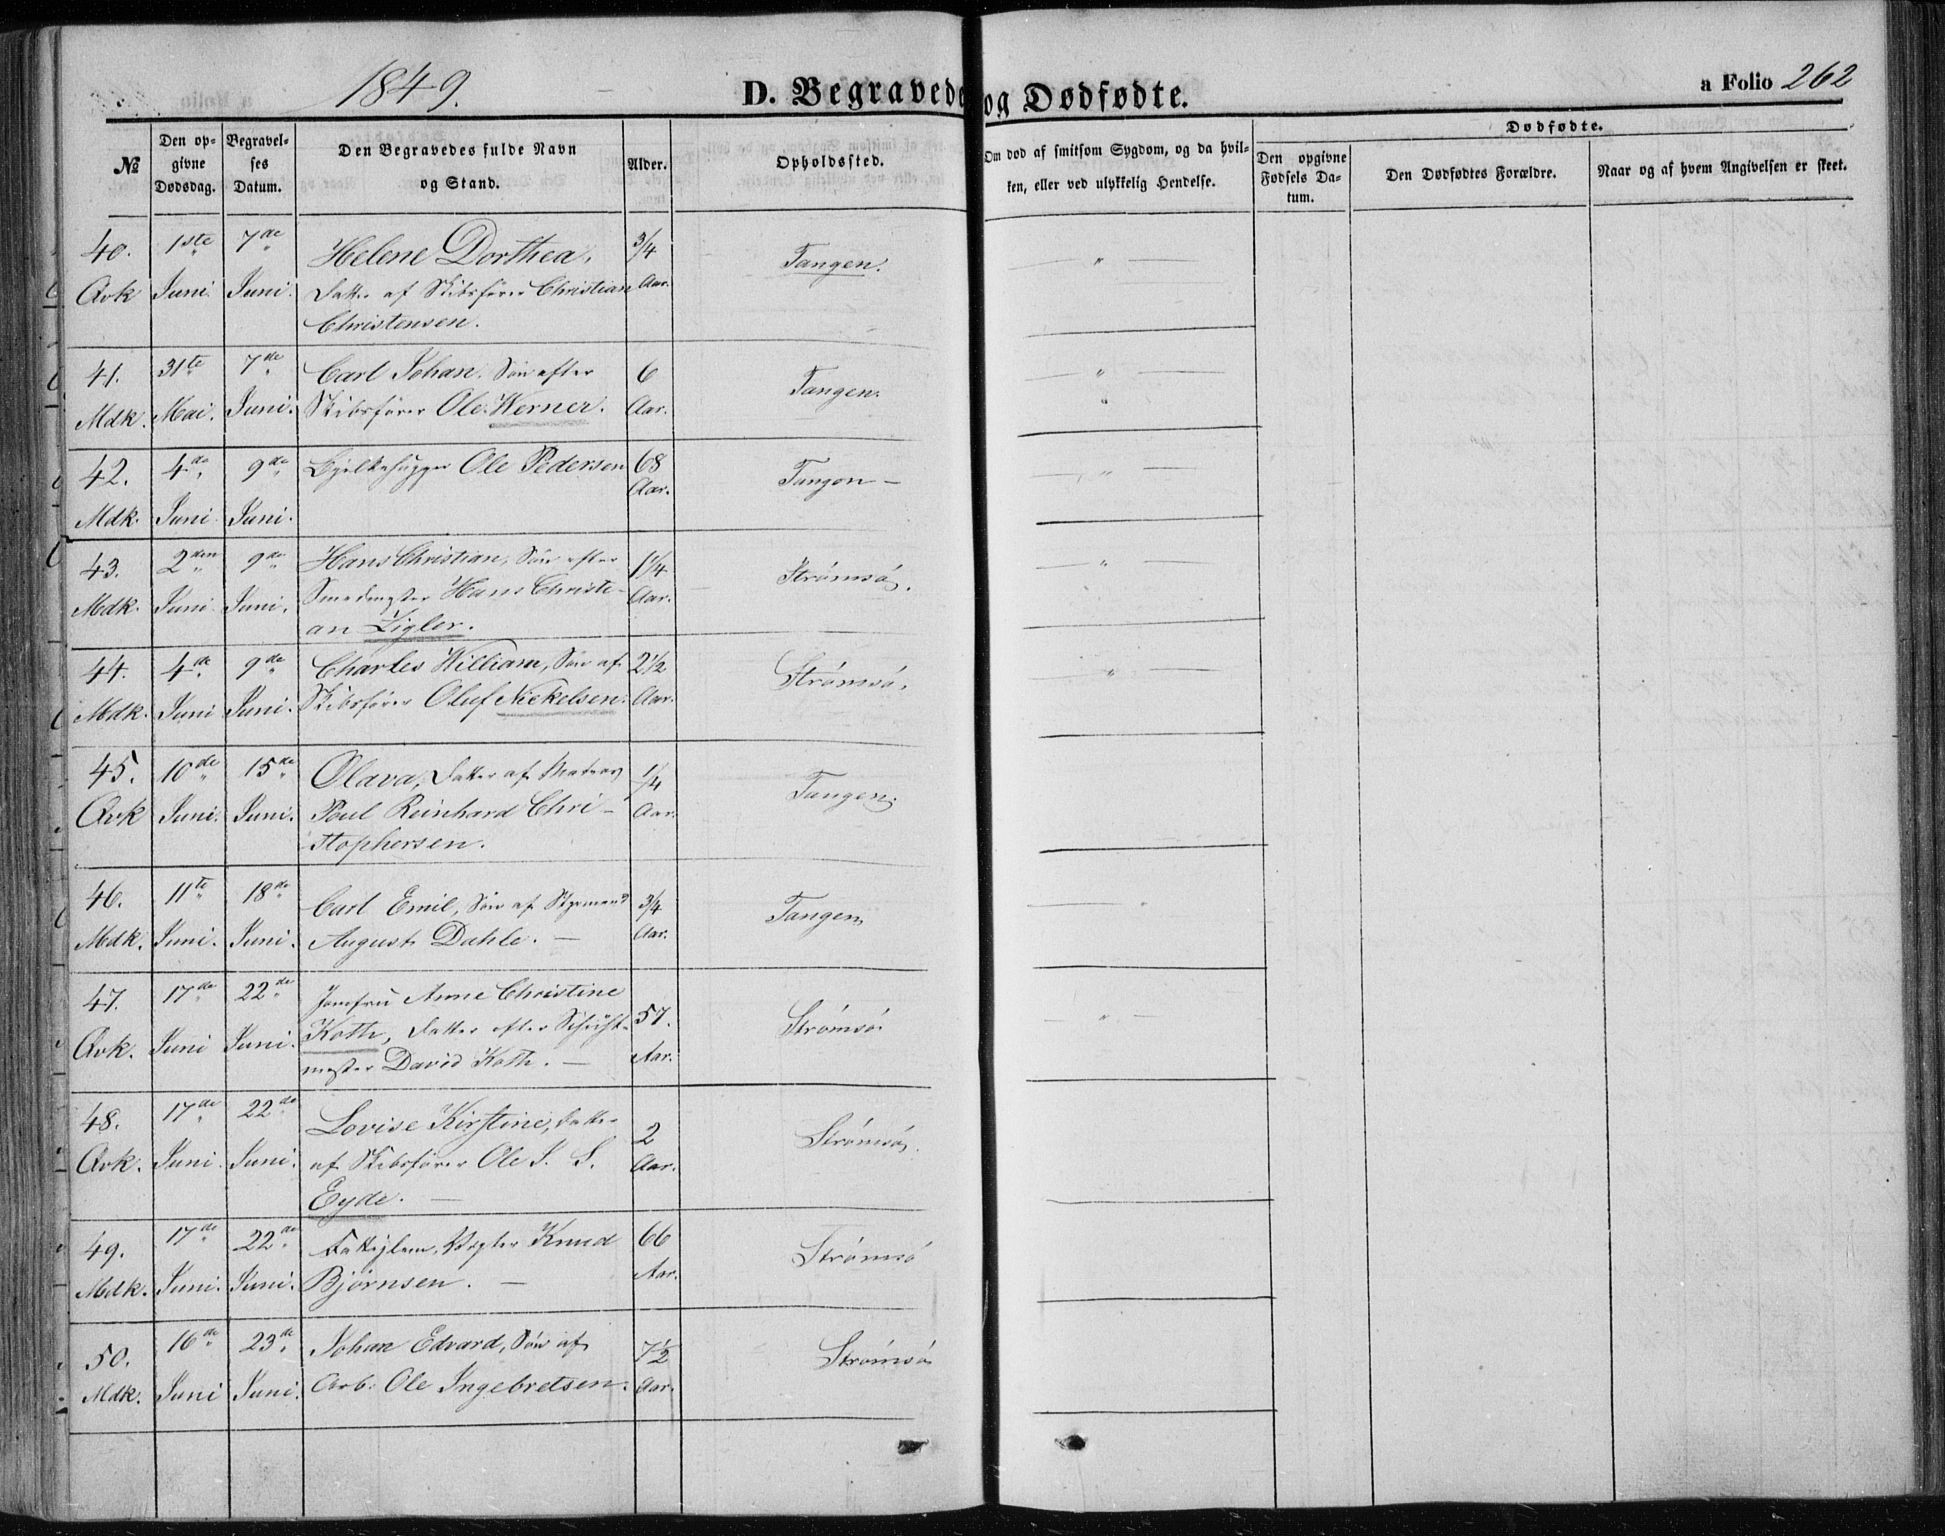 1849.
D. Begravede og Dødfødte.
a Folio 262
№
Den opgivne Dødsdag.
Begravelses Datum.
Den Begravedes fulde Navn og Stand.
Alder.
Opholdssted.
Om død af smitsom Sygdom, og da hvilken, eller ved ulykkelig Hendelse.
Dødfødte.
Den opgivne Fødsels Datum.
Den Dødfødtes Forældre.
Naar og af hvem Angivelsen er skeet.
40. 1ste 7de Helene Dorthea, 3/4 Tangen. — " —
Qvk Juni. Juni. Datter af Skibsfører Christian Aar.
Christensen.
41. 31te 7de Carl Johan. Søn efter 6 Tangen. — " —
Mdk. Mai. Juni. Skibsfører Ole Werner. Aar. "
42. 4de 9de Bjelkehugger Ole Pedersen 68 Tangen — — " —
Mdk. Juni. Juni. Aar.
43. 2den 9de Hans Christian, Søn efter 1 1/4 Strømsø. — " —
Mdk. Juni. Juni. Smedmester Hans Christi- Aar.
an Zigler.
44. 4de 9de Charles William, Søn af 2 1/2 Strømsø. — " —
Mdk. Juni Juni. Skibsfører Oluf Nickelsen. Aar.
45. 10de 15de Olava, Datter af Matros 1/4 Tangen.
Qvk Juni. Juni. Poul Reinhard Chri- Aar.
stophersen.
46. 11te 18de Carl Emil, Søn af Styrmand 3/4 Tangen — "
Mdk. Juni. Juni. August Dahle. — Aar.
47. 17de 22de Jomfru Anne Christine 57. Strømsø. — " —
Qvk. Juni Juni. Koth, Datter efter
mester David Koth. — Aar.
48. 17de 22de Lovise Kirstine, Datter 2 Strømsø.
Qvk. Juni. Juni. af Skibsfører Ole J. S. Aar.
Eyde. —
49. 17de 22de Fattiglem, Knud 66 Strømsø
Mdk. Juni. Juni. Bjørnsen. — Aar.
50. 16de 23de Johan Edvard, Søn af 7 1/2 Strømsø
Mdk. Juni Juni. Arb: Ole Ingebretsen. Aar.